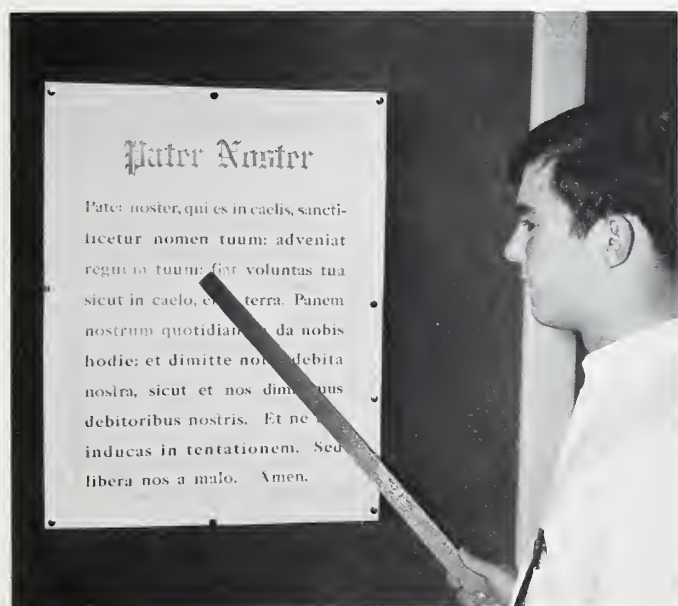 Pater Noster
Pater noster, qui es in caelis, sancti-
ficetur nomen tuum: adveniat
regnum tuum: fiat voluntas tua
sicut in caelo, terra. Panem
nostrum da nobis
hodie: et dimitte debita
nostra, sicut et nos
debitoribus nostris. Et ne
inducas in tentationem. Sed
libera nos a malo. Amen.